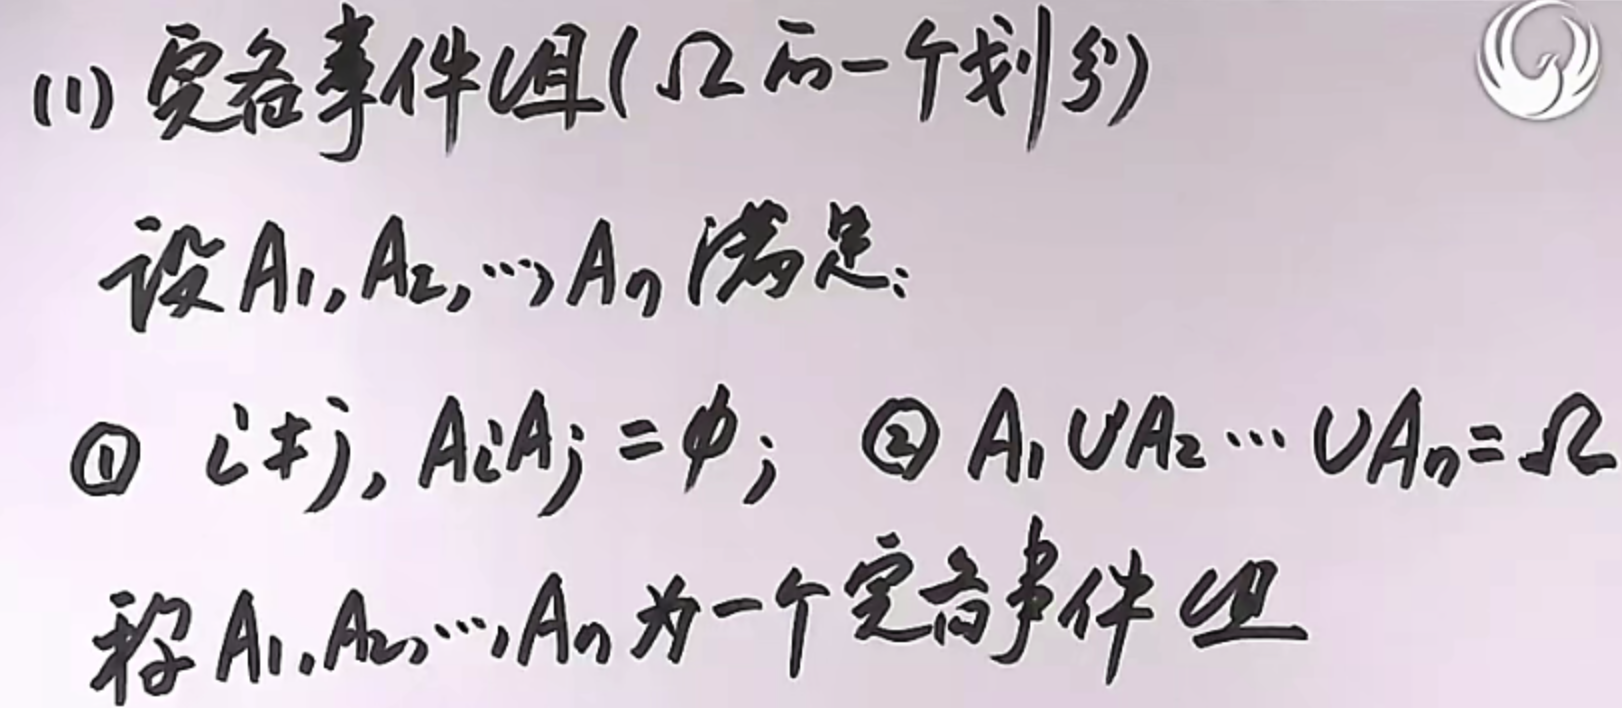 (1) 完备事件组(Ω的一个划分)
设A₁,A₂,…,Aₙ满足:
① i≠j, AᵢAⱼ=φ; ② A₁∪A₂…∪Aₙ=Ω
称A₁,A₂,…,Aₙ为一个完备事件组